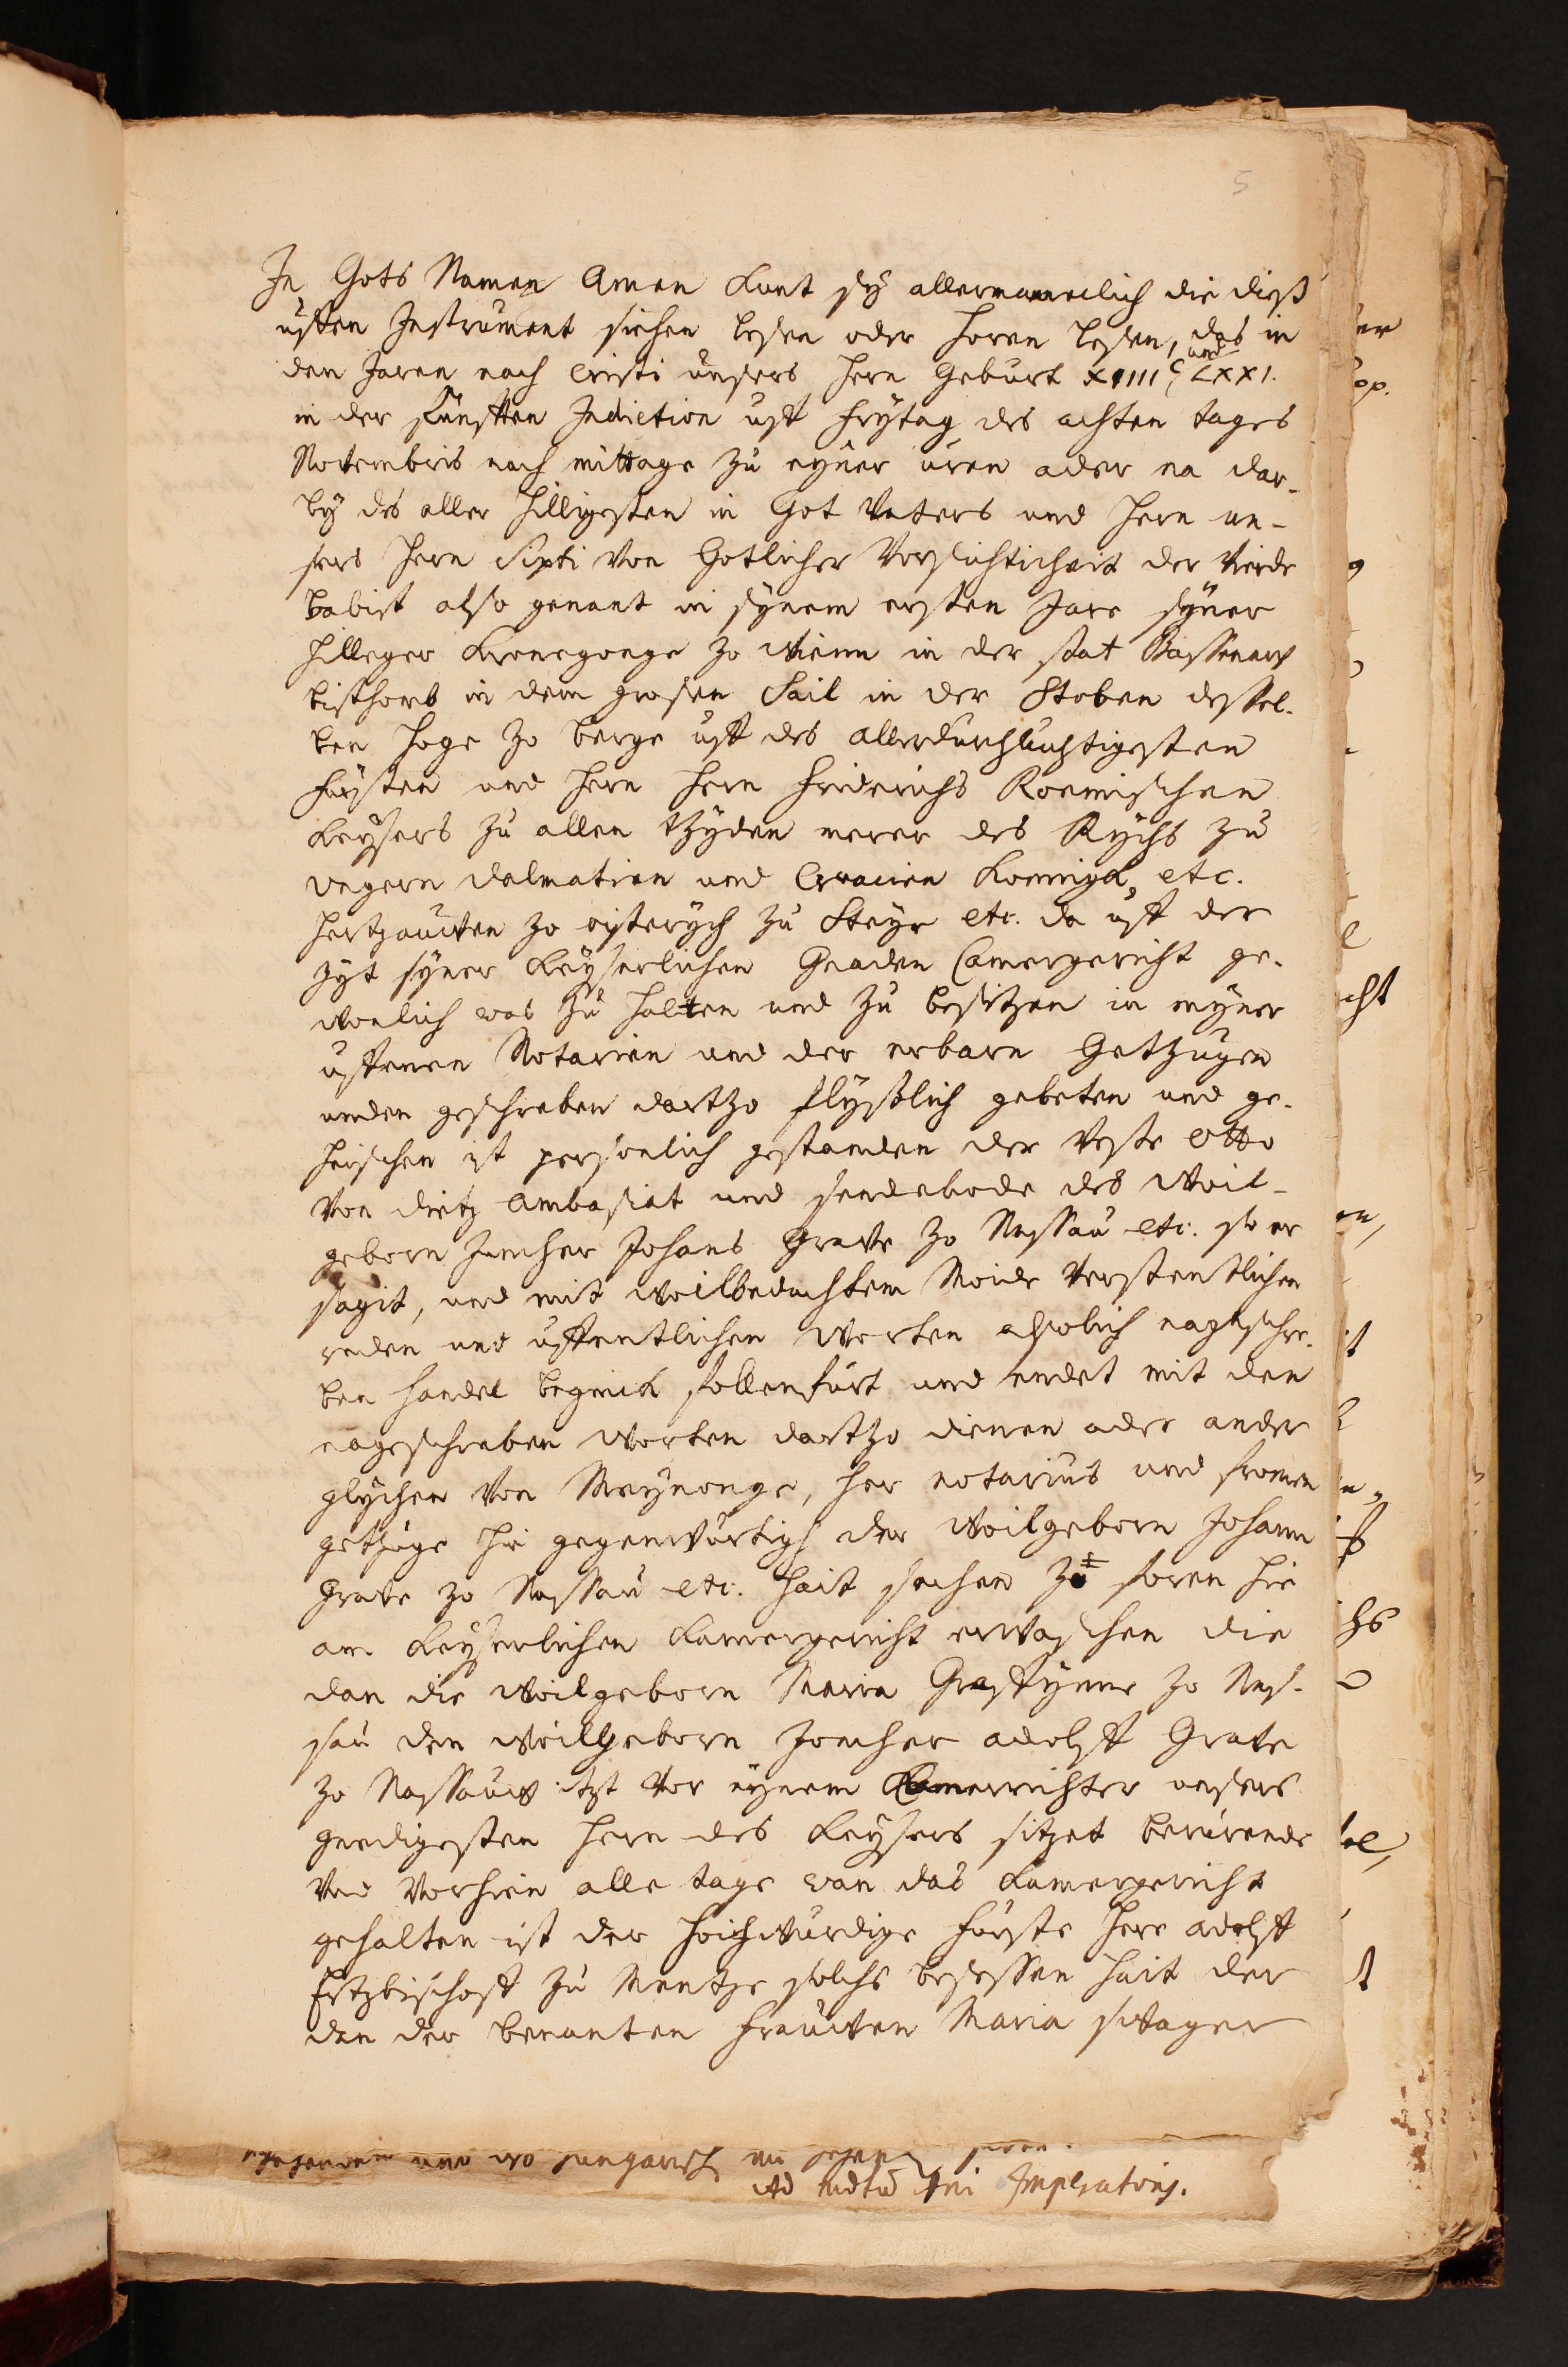 5
In Gots Namen Amen kunt sy allermannelich die dieß
uffen Instrument siehen lesen oder horen lesen, das in
den Jaren nach Cristi unsers hern Geburt XIIIIC und LXXI.
in der funfften Indiction uff Frytag des achten tages
Novembris nach mittage zu eyner uren ader na dar-
by des aller hilligesten in Got Vaters und hern un-
sers hern Sixti von Gotlicher Vorsichticheit der Vierde
babist also genant in synem ersten Jare syner
hilleger Kronegonge zo Wienn in der stat Passauwer
bisthomb in dem grosen Sail in der Stoben dessel-
ben hoge zo berge uff des allerdurchluchtigesten
fursten und hern hern Friderichs Roemischen
Keysers zu allen tzyden merer des Rychs zu
Ungern Dalmatien und Croacien Konnigh, etc.
Hertzauwen zo oisterych zu Steyr etc. da uff der
zyt syner Keyserlichen Gnaden Camergericht ge-
wonlich was zu halten und zu besitzen in myner
uffenen Notarien und der erbarn Getzugen
unden geschreben dartzo flyßlich gebeten und ge-
heischen ist personlich gestanden der Veste Otto
von Dietz Ambasiat und sendebode des Woil-
geborn Juncher Johans Grave zo Nassau etc. so er
sagit, und mit woilbedachtem Moide verstentlichen
reden und uffentlichen Worten assolich nageschre-
ben handel begunde follenfurt und endet mit den
nageschreben Worten dartzo dienen ader ander
glychen von Meynonge, her notarius und fromen
getzuge hie gegenwurtigh der Woilgeborn Johann
Grave zo Nassau etc. hait sachen zu foren hie
am Keyserlichen Kamergericht erwaschen die
dan die Woilgeborn Maria Graffynne zo Nas-
sau den Woilgeborn Joncher Adolff Grave
zo Nassauw itzt vor eynem Camerrichter unsers
gnedigesten hern des Keysers sitzet berurende
und vorhien alle tage wan das Kamergericht
gehalten ist der hoichwurdige furste here Adolff
Ertzbischoff zu Mentze solchs besessen hait der
dan der benanten Frauwen Maria swager
Ad mdtu dni Imperatoris.